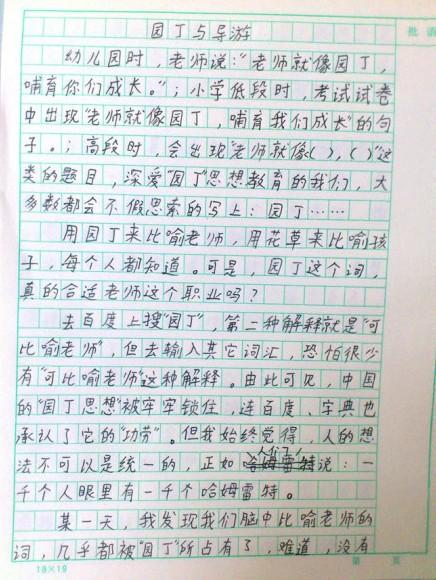 园丁与导游
幼儿园时，老师说："老师就像园丁，
哺育你们成长。"；小学低段时，考试试卷
中出现"老师就像园丁，哺育我们成长"的句
子。；高段时，会出现"老师就像( )，( )"这
类的题目，深爱"园丁"思想教育的我们，大
多数都会不假思索的写上：园丁……
用园丁来比喻老师，用花草来比喻孩
子，每个人都知道。可是，园丁这个词，
真的合适老师这个职业吗？
去百度上搜"园丁"，第二种解释就是"可
比喻老师"，但去输入其它词汇，恐怕很少
有"可比喻老师"这种解释。由此可见，中国
的"园丁思想"被牢牢锁住，连百度、字典也
承认了它的"功劳"。但我始终觉得，人的想
法不可以是统一的，正如人们说：一
千个人眼里有一千个哈姆雷特。
某一天，我发现我们脑中比喻老师的
词，几乎都被"园丁"所占有了，难道，没有
18×19
第 页
批语